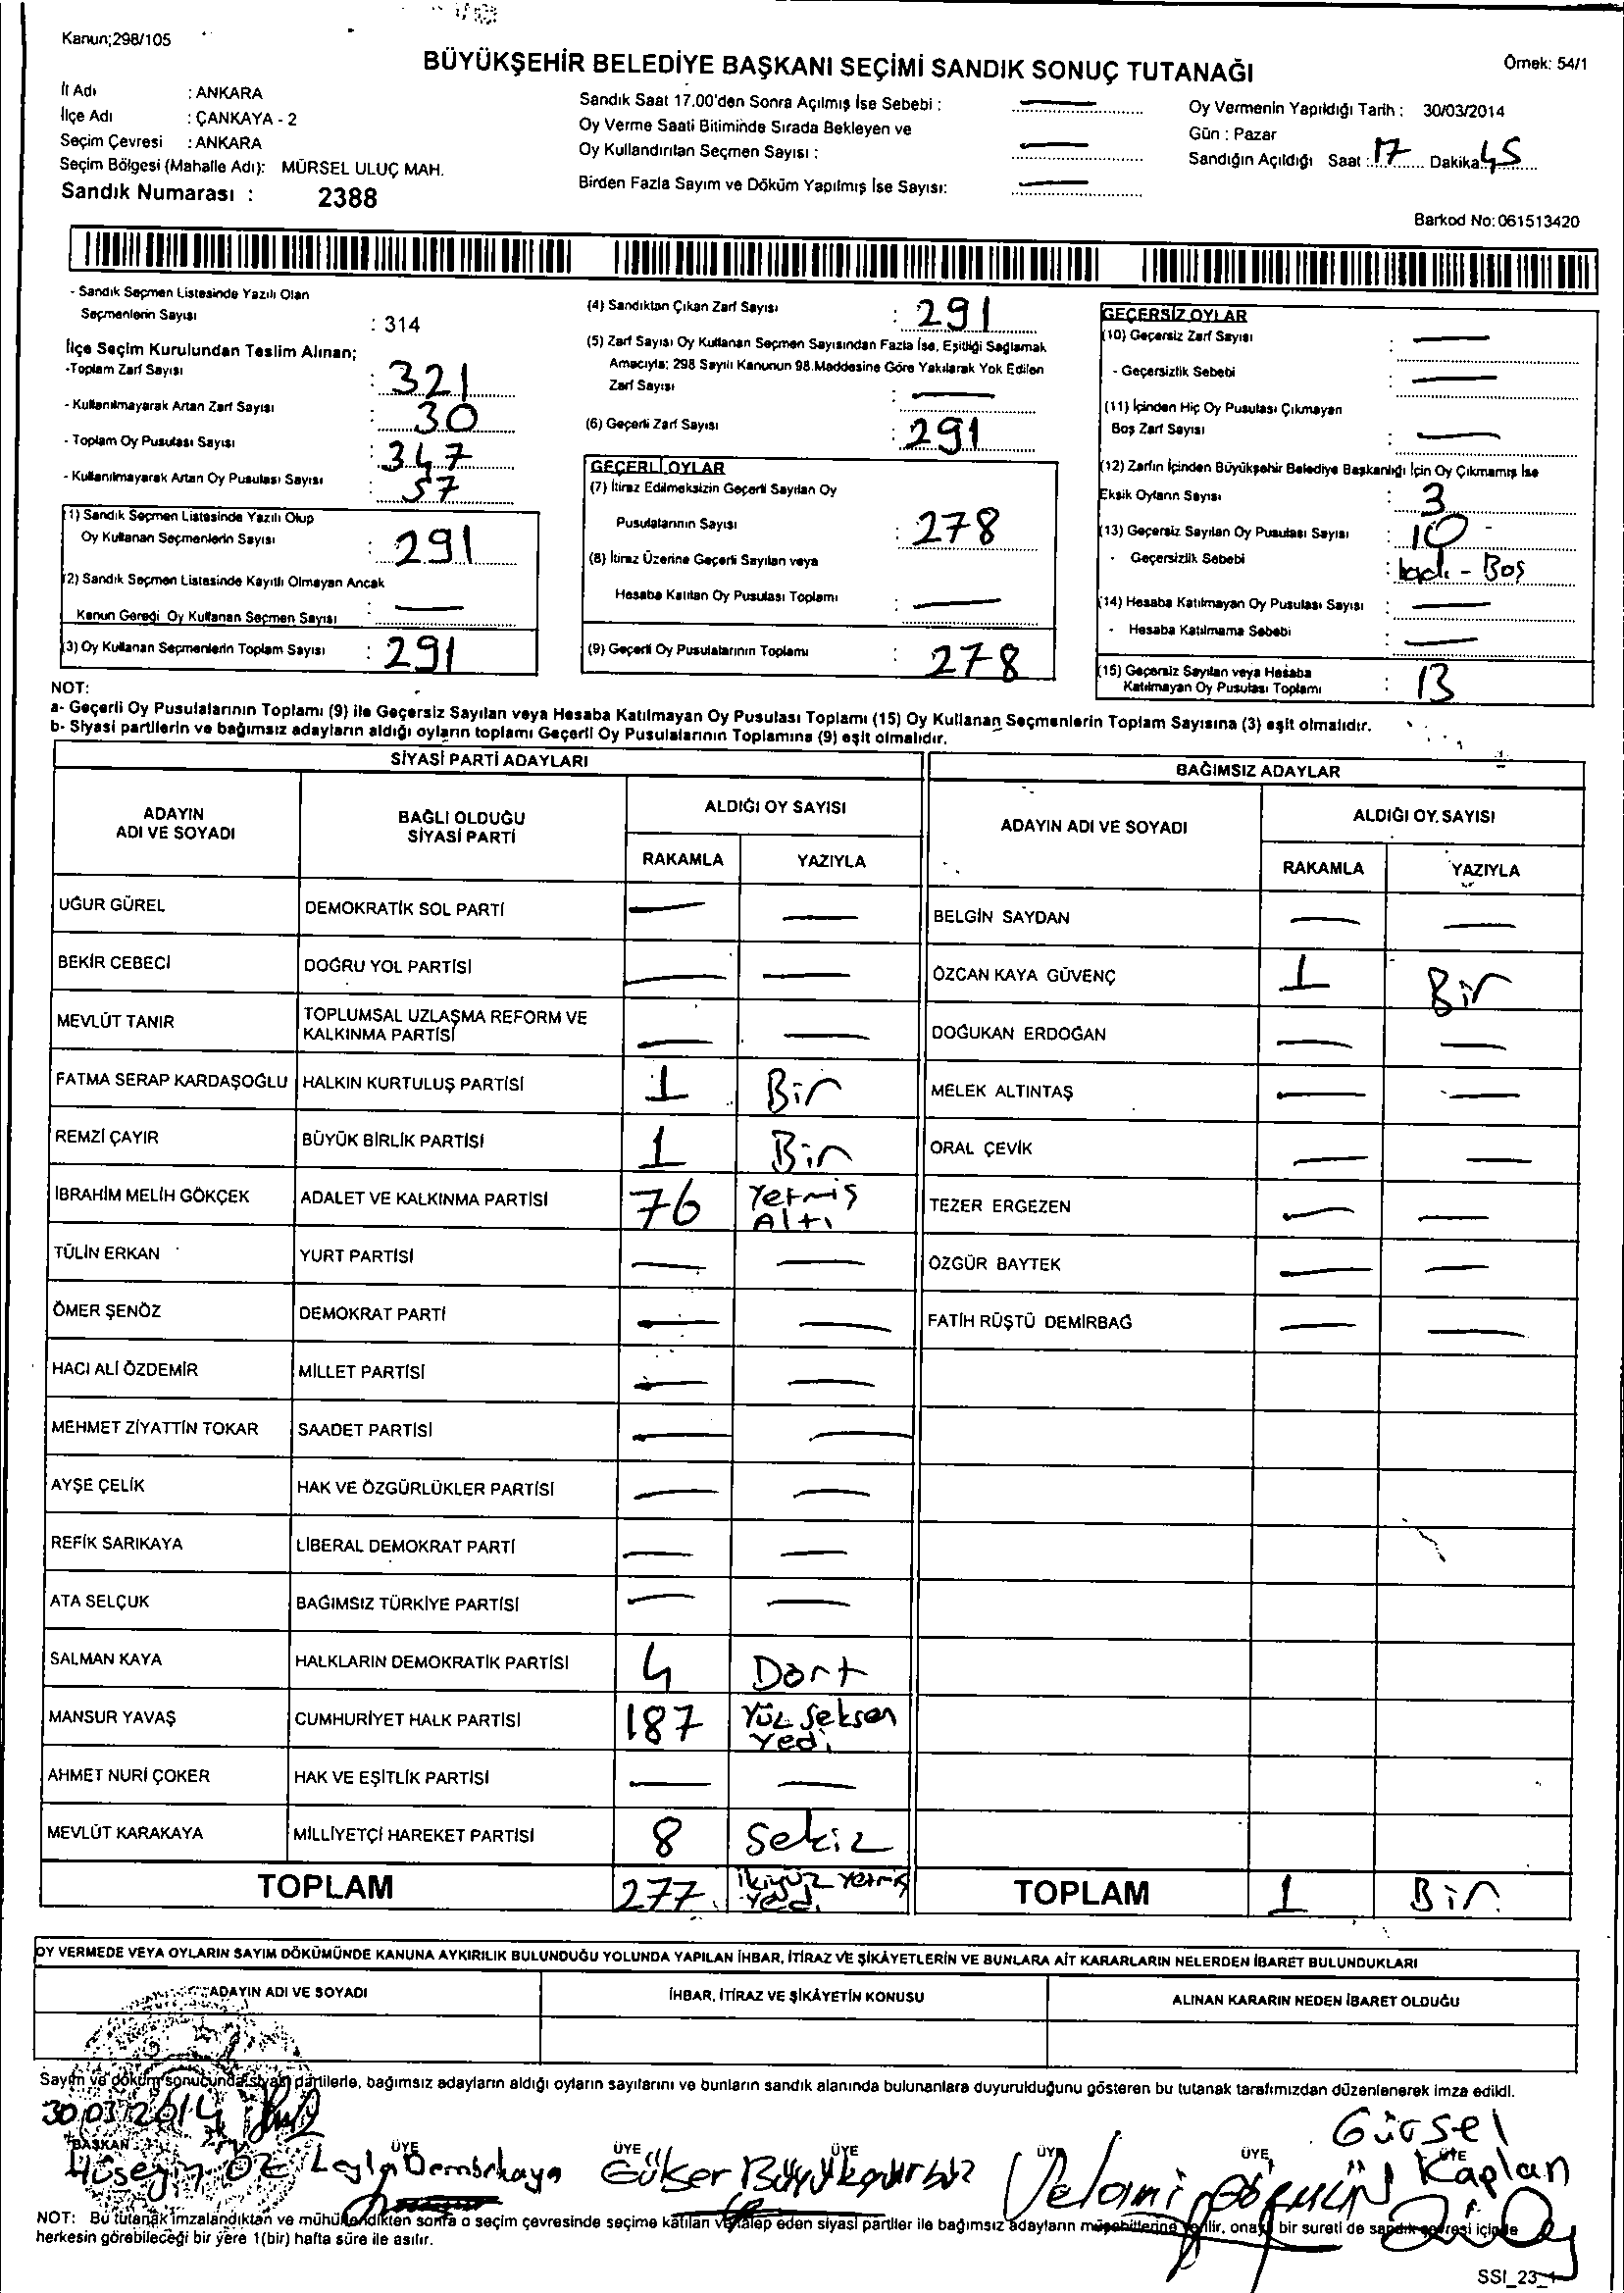 Kanun;298/105
BÜYÜKŞEHİR BELEDİYE BAŞKANI SEÇİMİ SANDIK SONUÇ TUTANAĞI
Örnek: 54/1
İl Adı : ANKARA
İlçe Adı : ÇANKAYA - 2
Seçim Çevresi : ANKARA
Seçim Bölgesi (Mahalle Adı): MÜRSEL ULUÇ MAH.
Sandık Numarası : 2388
Sandık Saat 17.00'den Sonra Açılmış İse Sebebi : —
Oy Verme Saati Bitiminde Sırada Bekleyen ve
Oy Kullandırılan Seçmen Sayısı : —
Birden Fazla Sayım ve Döküm Yapılmış İse Sayısı: —
Oy Vermenin Yapıldığı Tarih : 30/03/2014
Gün : Pazar
Sandığın Açıldığı Saat : 17 Dakika 45
Barkod No: 061513420
- Sandık Seçmen Listesinde Yazılı Olan
Seçmenlerin Sayısı : 314
İlçe Seçim Kurulundan Teslim Alınan;
-Toplam Zarf Sayısı : 321
- Kullanılmayarak Artan Zarf Sayısı : 30
- Toplam Oy Pusulası Sayısı : 347
- Kullanılmayarak Artan Oy Pusulası Sayısı : 57
(1) Sandık Seçmen Listesinde Yazılı Olup
Oy Kullanan Seçmenlerin Sayısı : 291
(2) Sandık Seçmen Listesinde Kayıtlı Olmayan Ancak
Kanun Gereği Oy Kullanan Seçmen Sayısı : —
(3) Oy Kullanan Seçmenlerin Toplam Sayısı : 291
(4) Sandıktan Çıkan Zarf Sayısı : 291
(5) Zarf Sayısı Oy Kullanan Seçmen Sayısından Fazla İse, Eşitliği Sağlamak
Amacıyla; 298 Sayılı Kanunun 98.Maddesine Göre Yakılarak Yok Edilen
Zarf Sayısı : —
(6) Geçerli Zarf Sayısı : 291
GEÇERLİ OYLAR
(7) İtiraz Edilmeksizin Geçerli Sayılan Oy
Pusulalarının Sayısı : 278
(8) İtiraz Üzerine Geçerli Sayılan veya
Hesaba Katılan Oy Pusulası Toplamı : —
(9) Geçerli Oy Pusulalarının Toplamı : 278
GEÇERSİZ OYLAR
(10) Geçersiz Zarf Sayısı : —
- Geçersizlik Sebebi : —
(11) İçinden Hiç Oy Pusulası Çıkmayan
Boş Zarf Sayısı : —
(12) Zarfın İçinden Büyükşehir Belediye Başkanlığı İçin Oy Çıkmamış İse
Eksik Oyların Sayısı : 3
(13) Geçersiz Sayılan Oy Pusulası Sayısı : 10
- Geçersizlik Sebebi : - Boş
(14) Hesaba Katılmayan Oy Pusulası Sayısı : —
- Hesaba Katılmama Sebebi : —
(15) Geçersiz Sayılan veya Hesaba
Katılmayan Oy Pusulası Toplamı : 13
NOT:
a- Geçerli Oy Pusulalarının Toplamı (9) ile Geçersiz Sayılan veya Hesaba Katılmayan Oy Pusulası Toplamı (15) Oy Kullanan Seçmenlerin Toplam Sayısına (3) eşit olmalıdır.
b- Siyasi partilerin ve bağımsız adayların aldığı oyların toplamı Geçerli Oy Pusulalarının Toplamına (9) eşit olmalıdır.
SİYASİ PARTİ ADAYLARI
ADAYIN ADI VE SOYADI
BAĞLI OLDUĞU SİYASİ PARTİ
ALDIĞI OY SAYISI
RAKAMLA YAZIYLA
UĞUR GÜREL DEMOKRATİK SOL PARTİ — —
BEKİR CEBECİ DOĞRU YOL PARTİSİ — —
MEVLÜT TANIR TOPLUMSAL UZLAŞMA REFORM VE KALKINMA PARTİSİ — —
FATMA SERAP KARDAŞOĞLU HALKIN KURTULUŞ PARTİSİ 1 Bir
REMZİ ÇAYIR BÜYÜK BİRLİK PARTİSİ 1 Bir
İBRAHİM MELİH GÖKÇEK ADALET VE KALKINMA PARTİSİ 76 Yetmiş Altı
TÜLİN ERKAN YURT PARTİSİ — —
ÖMER ŞENÖZ DEMOKRAT PARTİ — —
HACI ALİ ÖZDEMİR MİLLET PARTİSİ — —
MEHMET ZİYATTİN TOKAR SAADET PARTİSİ — —
AYŞE ÇELİK HAK VE ÖZGÜRLÜKLER PARTİSİ — —
REFİK SARIKAYA LİBERAL DEMOKRAT PARTİ — —
ATA SELÇUK BAĞIMSIZ TÜRKİYE PARTİSİ — —
SALMAN KAYA HALKLARIN DEMOKRATİK PARTİSİ 4 Dört
MANSUR YAVAŞ CUMHURİYET HALK PARTİSİ 187 Yüz Seksen Yedi
AHMET NURİ ÇOKER HAK VE EŞİTLİK PARTİSİ — —
MEVLÜT KARAKAYA MİLLİYETÇİ HAREKET PARTİSİ 8 Sekiz
TOPLAM 277 ikiyüz Yetmiş Yedi
BAĞIMSIZ ADAYLAR
ADAYIN ADI VE SOYADI
ALDIĞI OY SAYISI
RAKAMLA YAZIYLA
BELGİN SAYDAN — —
ÖZCAN KAYA GÜVENÇ 1 Bir
DOĞUKAN ERDOĞAN — —
MELEK ALTINTAŞ — —
ORAL ÇEVİK — —
TEZER ERGEZEN — —
ÖZGÜR BAYTEK — —
FATİH RÜŞTÜ DEMİRBAĞ — —
TOPLAM 1 Bir
OY VERMEDE VEYA OYLARIN SAYIM DÖKÜMÜNDE KANUNA AYKIRILIK BULUNDUĞU YOLUNDA YAPILAN İHBAR, İTİRAZ VE ŞİKÂYETLERİN VE BUNLARA AİT KARARLARIN NELERDEN İBARET BULUNDUKLARI
ADAYIN ADI VE SOYADI
İHBAR, İTİRAZ VE ŞİKÂYETİN KONUSU
ALINAN KARARIN NEDEN İBARET OLDUĞU
Sayım ve döküm sonucunda siyasi partilerle, bağımsız adayların aldığı oyların sayılarını ve bunların sandık alanında bulunanlara duyurulduğunu gösteren bu tutanak tarafımızdan düzenlenerek imza edildi.
30/03/2014
BAŞKAN ÜYE ÜYE ÜYE ÜYE ÜYE ÜYE
Hüseyin ÖZ Leyla Demirkaya Gülser Gürsel Kaplan
NOT: Bu tutanak imzalandıktan ve mühürlendikten sonra o seçim çevresinde seçime katılan ve talep eden siyasi partiler ile bağımsız adayların müşahitlerine verilir, onaylı bir sureti de sandık çevresi içinde
herkesin görebileceği bir yere 1(bir) hafta süre ile asılır.
SSI_23_1